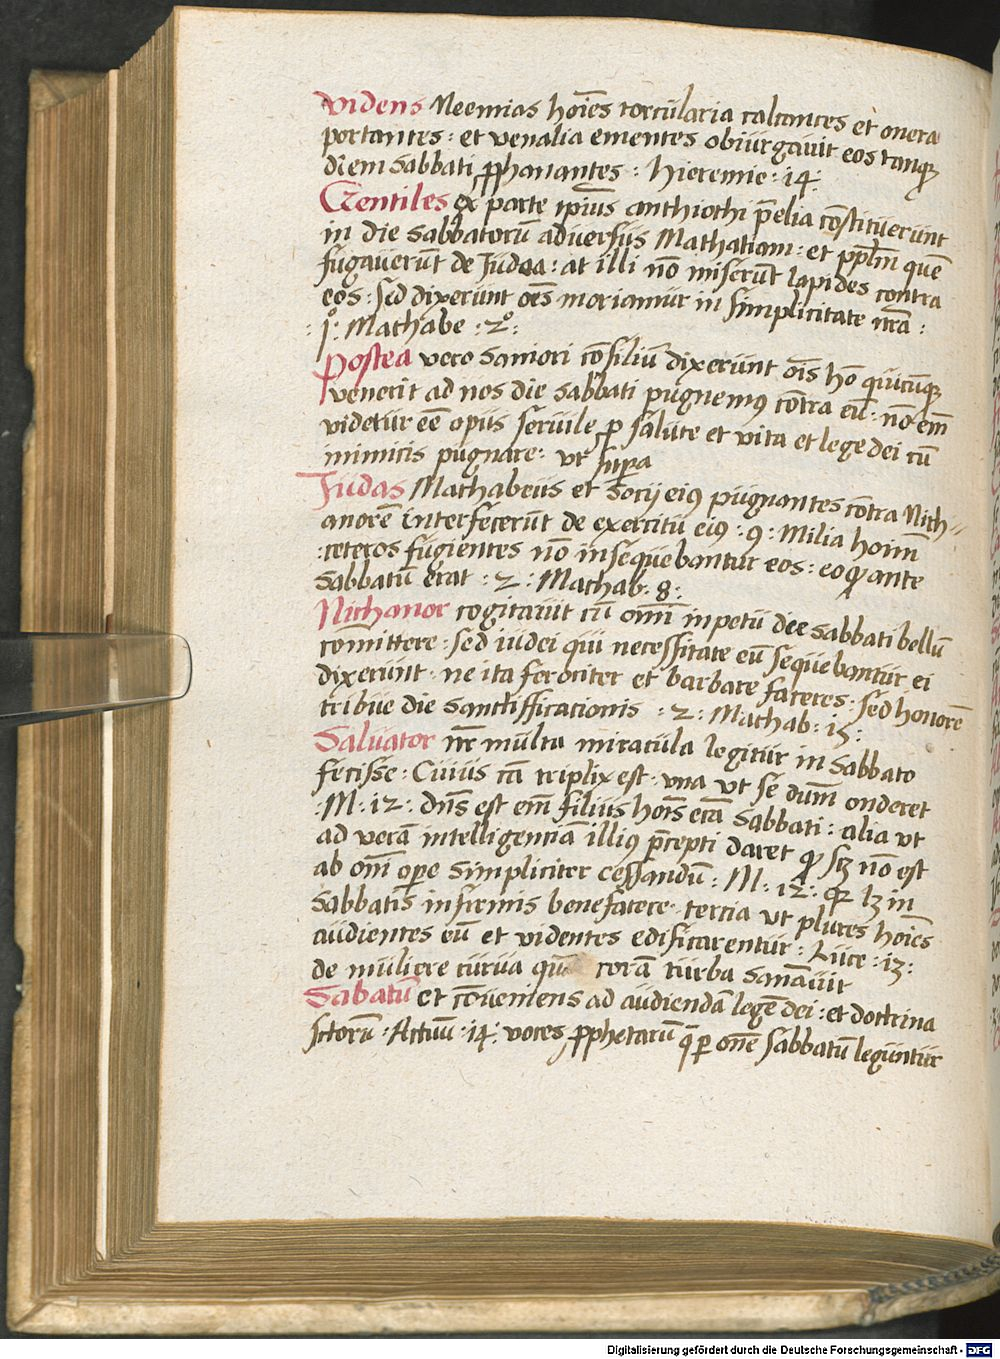 Videns Neemias hoīes torcularia calcantes et onera
portantes : et venalia ementes obiurgauit eos tanqꝫ
diem sabbati ꝓphanantes : Hieremie : 14 :
Gentiles ex parte ipīus anthiothi p̄elia cōstituerunt
in die sabbatorū aduersus Mathatiam : et pplm̄ quē
fugauerūt de Iudaa : at illi nō miserūt lapides contra
eos : sed dixerunt oēs moriamur in simplicitate nrā :
: j° : Mathabe : 2° :
Postea vero saniori cōsiliū dixerunt oīs hō quicūqꝫ
venerit ad nos die sabbati pugnemꝰ cōtra eū : nō em̄
videtur eē opus seruile ꝓ salute et vita et lege dei cū
inimicis pugnare : vt supra
Iudas Mathabeus et socij eiꝰ pugnantes cōtra Nich-
anorē interfecerūt de exercitu eiꝰ : 9 : Milia hoim̄
: ceteros fugientes nō insequebantur eos : eo qꝫ ante
sabbatū erat : 2 : Mathab : 8 :
Nichanor cogitauit cū om̄i inpetu die sabbati bellū
cōmittere : sed iudei qui necessitate eū sequebantur ei
dixerunt : ne ita ferociter et barbare faceres : sed honorē
tribue die sanctifficationis : 2 : Mathab : 15 :
Saluator nr̄ multa miracula legitur in sabbato
fecisse : Cuius cā triplix est : vna vt se dūm onderet
: M : 12 : dn̄s est em̄ filius hoīs etiā sabbati : alia vt
ad verā intelligenciā illiꝰ p̄cepti daret qꝫ sꝫ nō est
ab om̄i oꝑe simpliciter cessandū : M : 12 : qꝫ lꝫ in
sabbatis infirmis benefacere : tercia vt plures hoīes
audientes eū et videntes edificarentur : Luce : 13 :
de muliere curua quā corā turba sanauit
Sabatū et cōueniens ad audiendā legē dei : et doctrina
sctorū : Actuū : 14 : voces ꝓphetarū q̄ ꝑ om̄e sabbatū leguntur
Digitalisierung gefördert durch die Deutsche Forschungsgemeinschaft - DFG